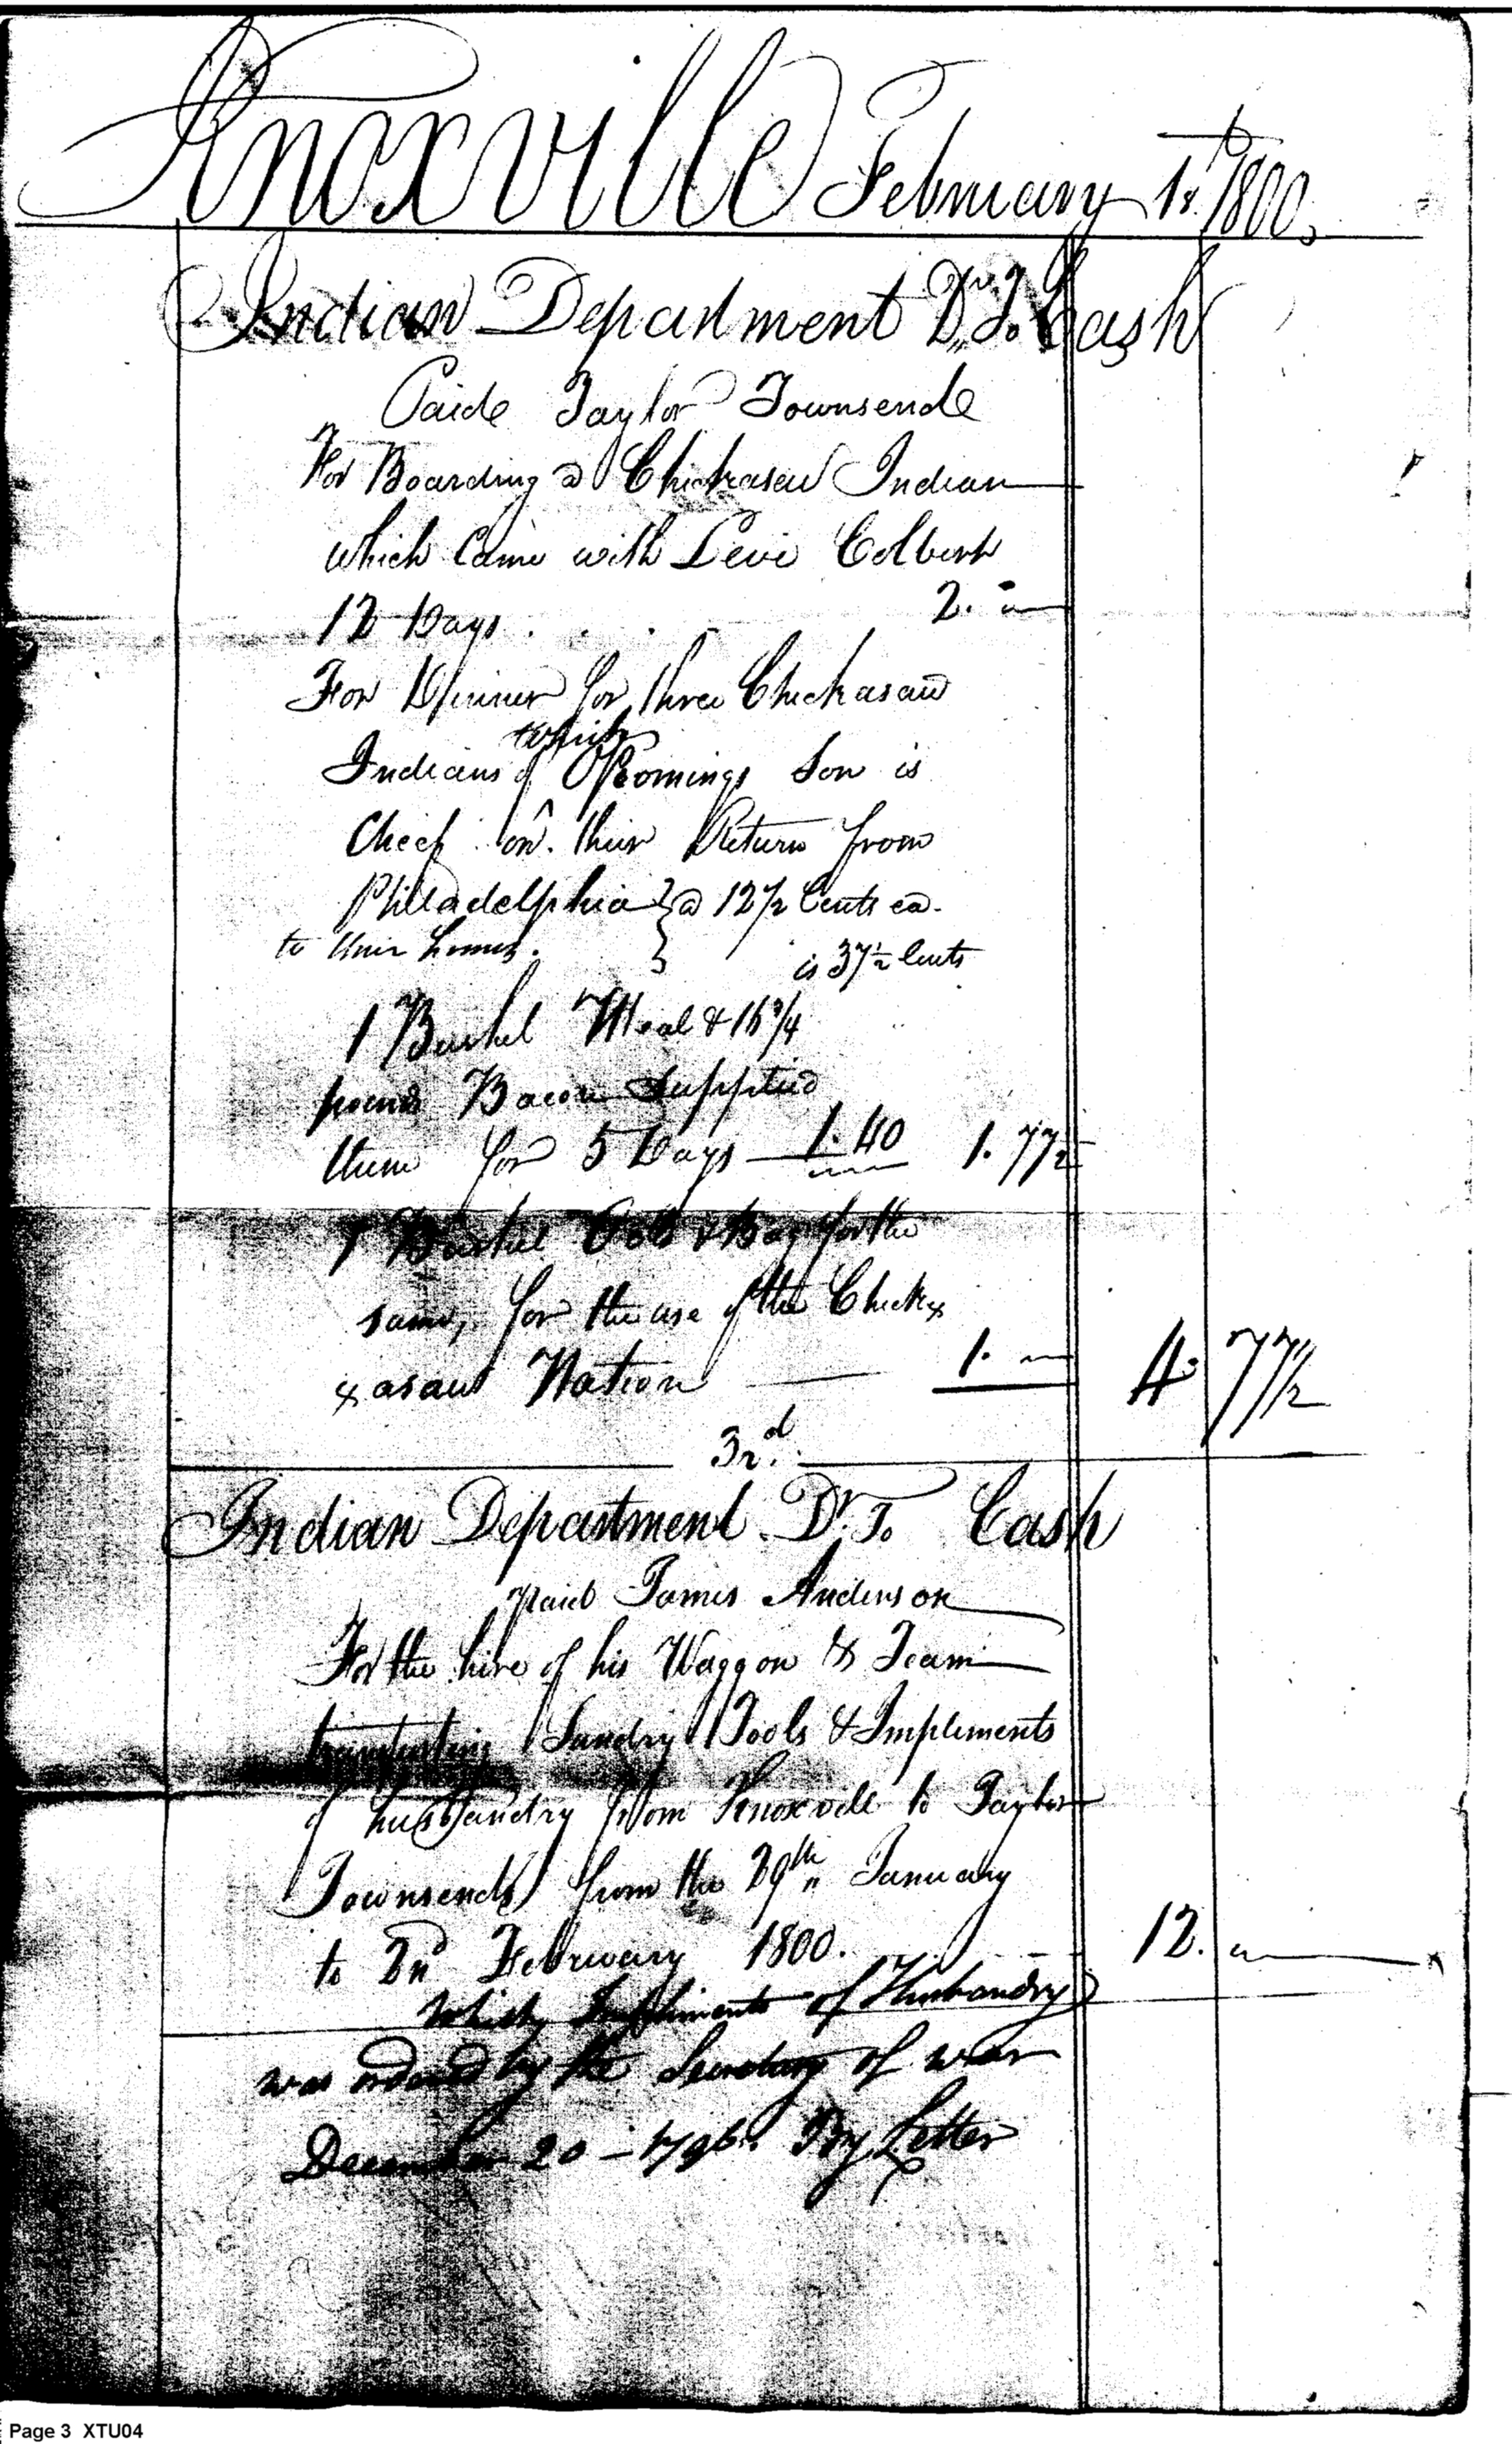 Knoxville February 1st. 1800.
Indian Department Dr. To Cash
Paide Taylor Townsende
For Boarding a Chickasaw Indian
which Came with Levi Colbert
12 Days . . . . 2. "
For Dinner for three Chickasaw
which
Indians of Opeomings Son is
Cheef on. their Return from
Philladelphia } @ 12 1/2 Cents ea.
to their homes. } is 37 1/2 Cents
1 Bushel Meal & 16 3/4
pound Bacon Supplied
them for 5 Days 1.40 1.77 1/2
1 Bushel & Bag for the
same, for the use of the Chick=
=asaw Nation 1. " 4. 77 1/2
3rd.
Indian Department Dr. To Cash
paid James Anderson
For the hire of his Waggon & Team
Sundry Tools & Impliments
of husbandry from Knoxville to Taylor
Townsends from the 29th January
to 2nd February 1800. 12. "
Which Impliments of Husbandry
was ordered by the Secretary of war
December 20 - 1796. By Letter
Page 3 XTU04